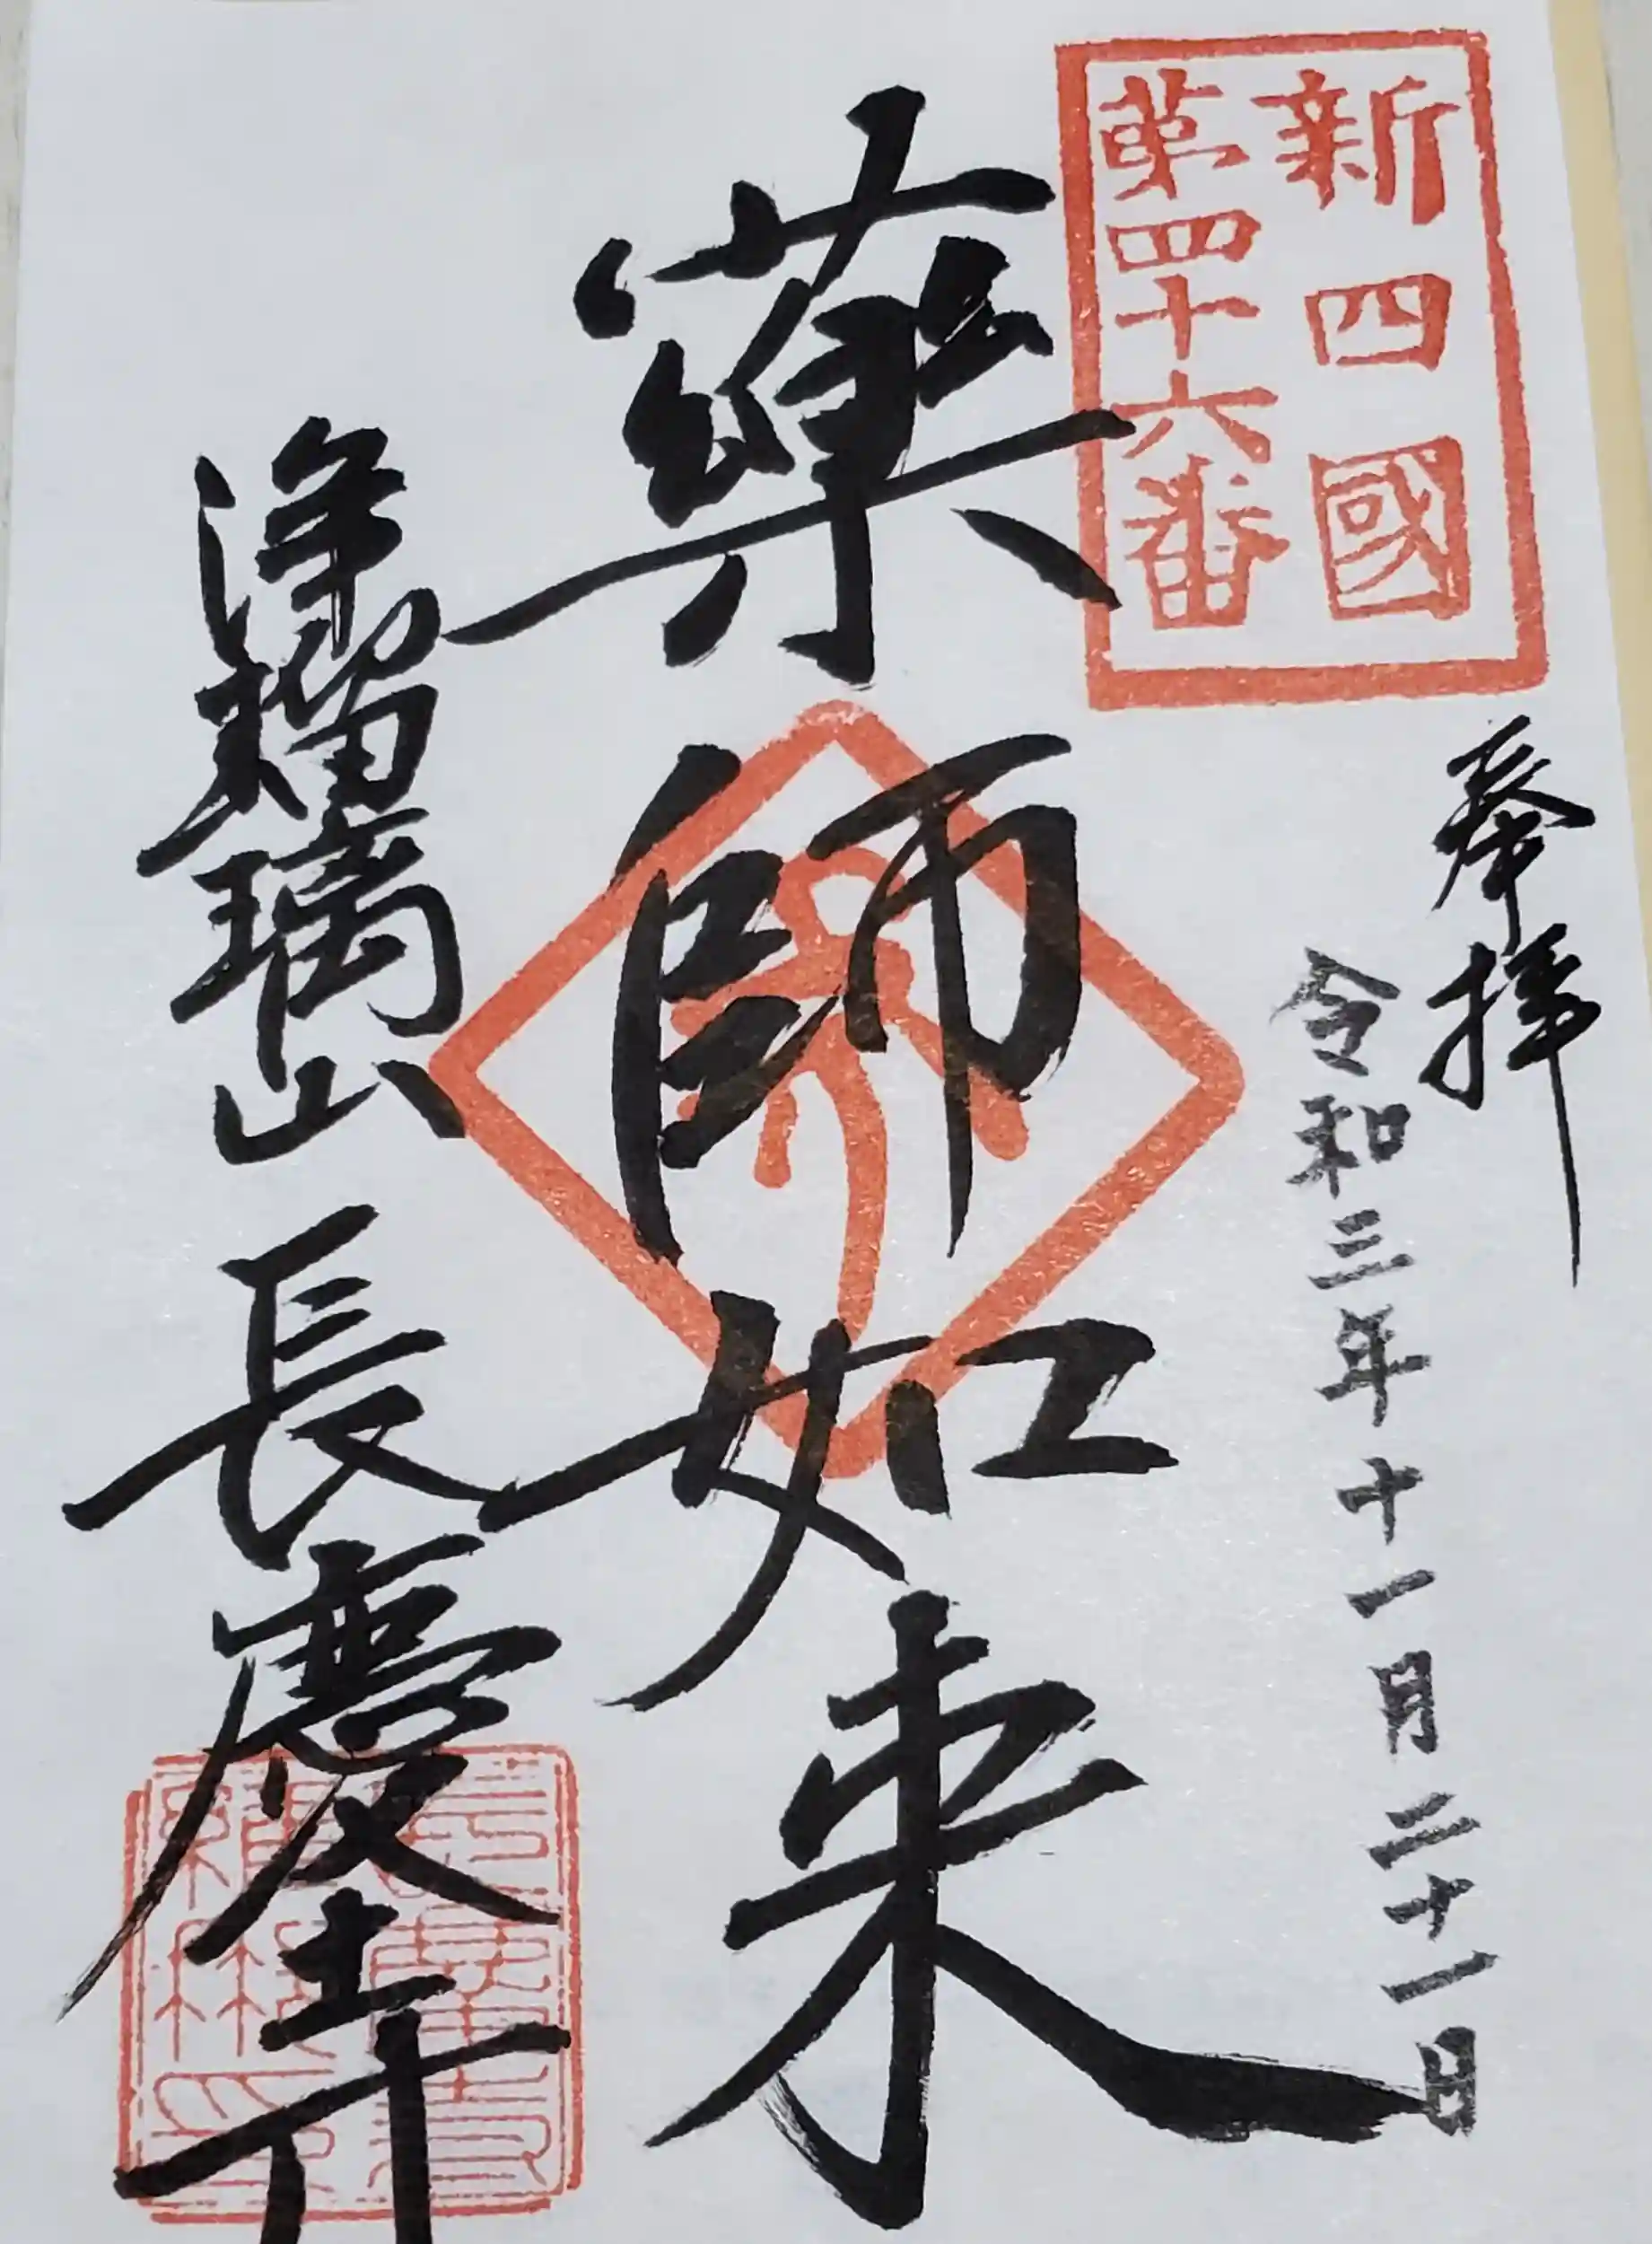 新四國
第四十六番
奉拝
令和三年十一月二十一日
藥師如来
浄瑠璃山 長慶寺